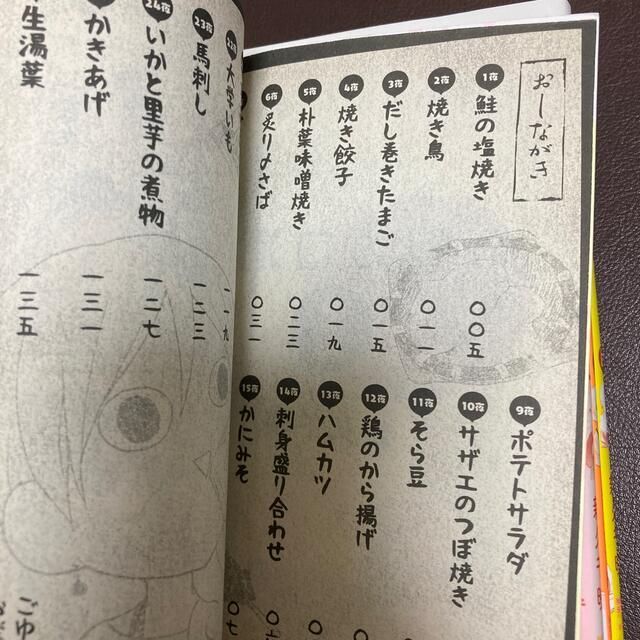 おしながき
1夜 鮭の塩焼き 〇〇五
2夜 焼き鳥 〇一一
3夜 だし巻きたまご 〇一五
4夜 焼き餃子 〇一九
5夜 朴葉味噌焼き 〇二三
6夜 炙り〆さば 〇三一
9夜 ポテトサラダ
10夜 サザエのつぼ焼き
11夜 そら豆
12夜 鶏のから揚げ
13夜 ハムカツ
14夜 刺身盛り合わせ
15夜 かにみそ
大学いも 一一九
23夜 馬刺し 一二三
24夜 いかと里芋の煮物 一二七
かきあげ 一三一
生湯葉 一三五